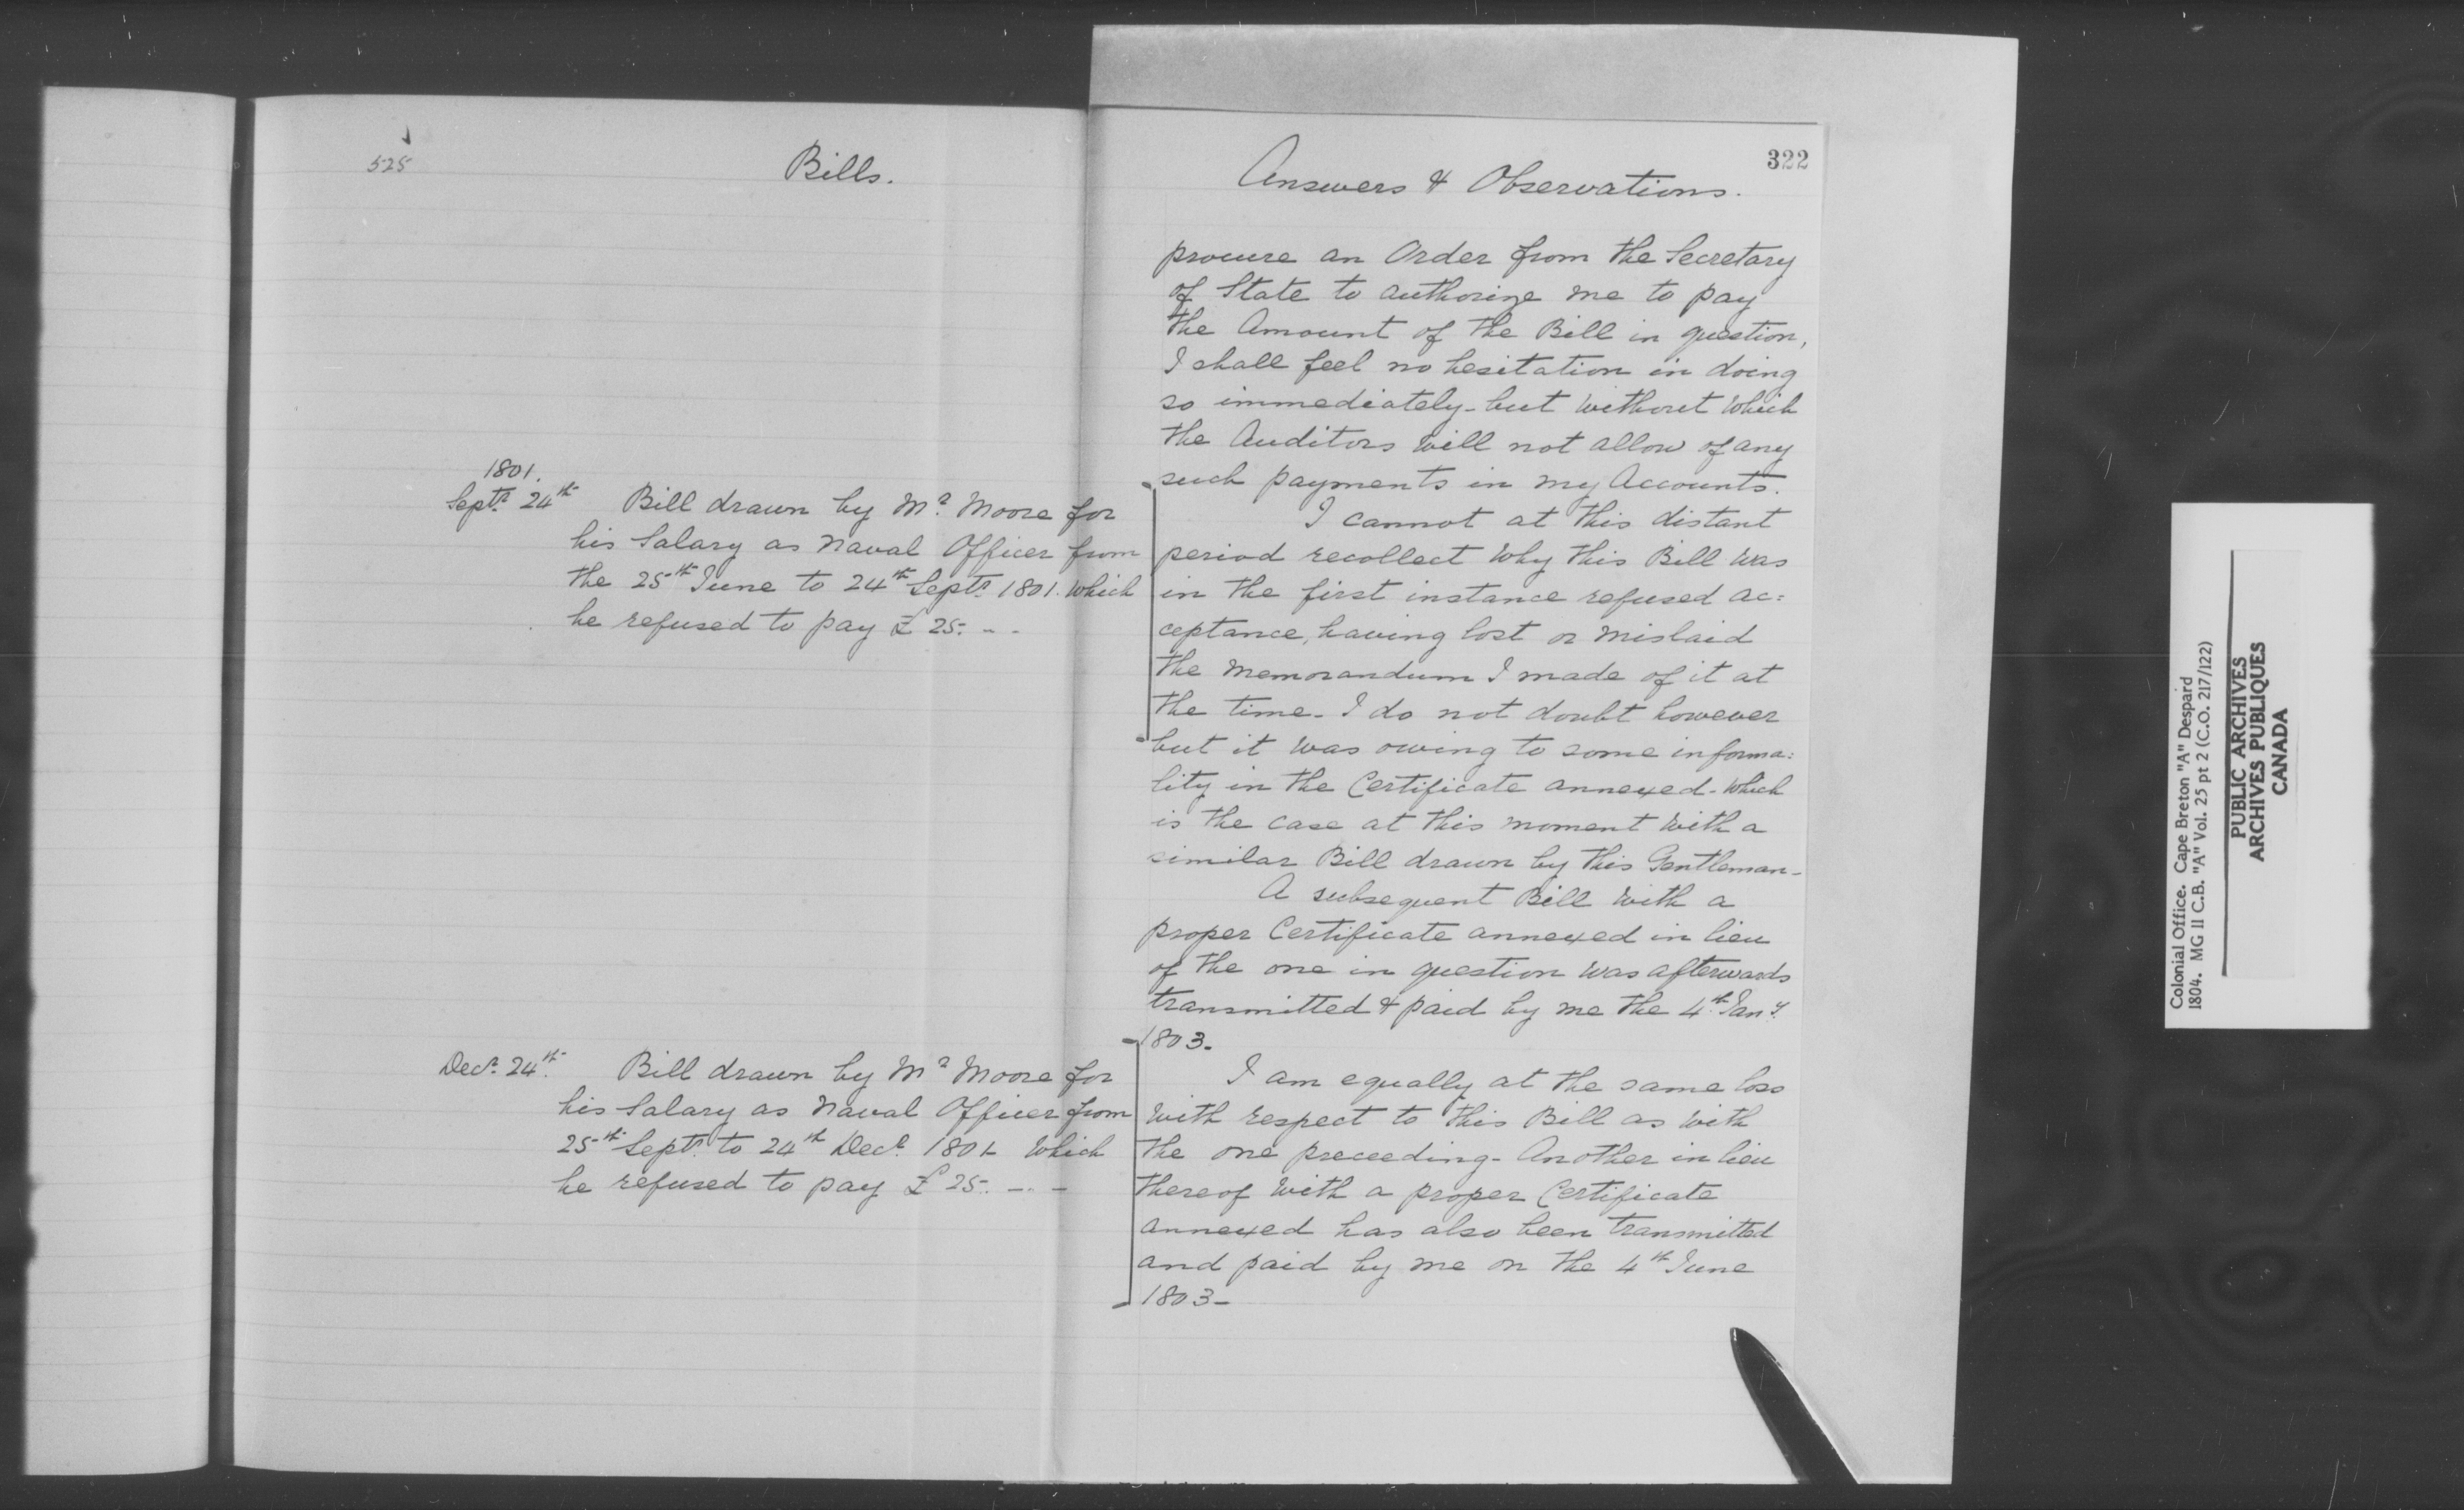 525
Bills.
1801.
Septr 24th Bill drawn by Mr Moore for
his Salary as Naval Officer from
the 25th June to 24th Septr 1801. which
he refused to pay £ 25. - -
Decr 24th Bill drawn by Mr Moore for
his Salary as Naval Officer from
25th Septr to 24th Decr 1801 which
he refused to pay £ 25. - -
322
Answers & Observations.
procure an Order from the Secretary
of State to authorize me to pay
the Amount of the Bill in question,
I shall feel no hesitation in doing
so immediately - but without which
the Auditors will not allow of any
such payments in my Accounts.
I cannot at this distant
period recollect why this Bill was
in the first instance refused ac=
ceptance, having lost or mislaid
the memorandum I made of it at
the time - I do not doubt however
but it was owing to some informa=
lity in the Certificate annexed - which
is the case at this moment with a
similar Bill drawn by this Gentleman -
A subsequent Bill with a
proper Certificate annexed in lieu
of the one in question was afterwards
transmitted & paid by me the 4th Jany
1803 -
I am equally at the same loss
with respect to this Bill as with
the one preceeding - Another in lieu
thereof with a proper Certificate
annexed has also been transmitted
and paid by me on the 4th June
1803 -
Colonial Office. Cape Breton "A" Despard
1804. MG 11 C.B. "A" Vol. 25 pt 2 (C.O. 217/122)
PUBLIC ARCHIVES
ARCHIVES PUBLIQUES
CANADA